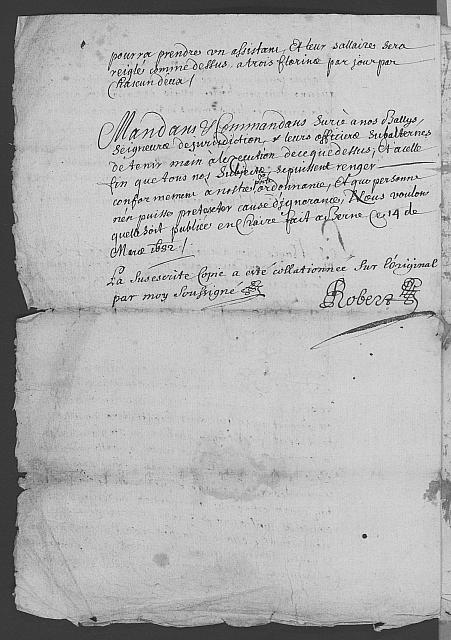 pourra prendre vn assistant, Et leur sallaire sera
reiglé comme dessus, a trois florins par jour par
Chascun deux /
Mandans & Commandans surce a nos Ballys,
seigneurs de jurisdiction, & leurs officiers subalternes
de tenir main a lexecution de ce que dessus, et a celle
fin que tous nos subjects, se puissent renger
conformement a nostre ordonnance, Et que personne
n'en puisse pretexter cause d'ignorance, Nous voulons
quelle soit publiée en Chaire fait a Berne Ce 14 de
Mars 1682 /
La Susescrite Copie a esté collationnée Sur l'original
par moy soussigné
Robert